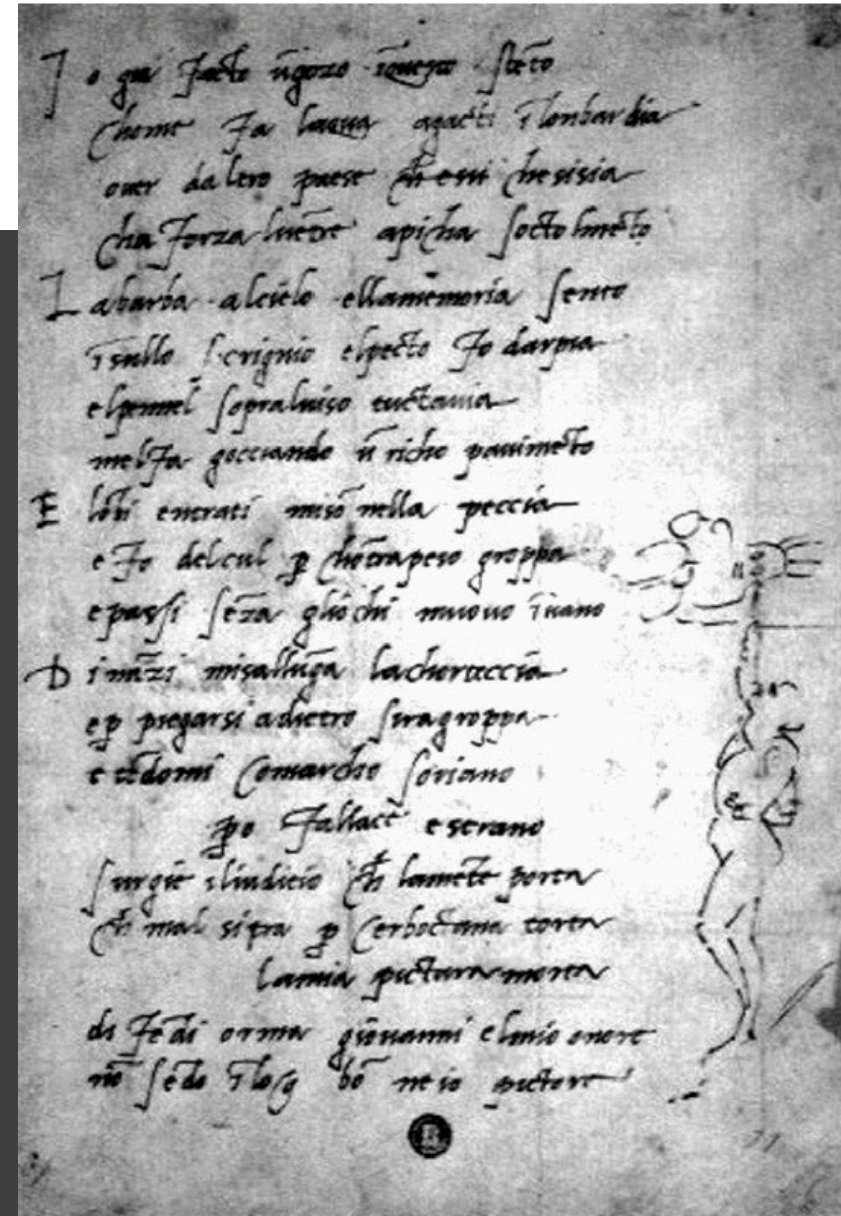 Jo gia facto ūgozo īquesto stēto
chome fa lacqua agacti ī lonbardia
over daltro paese che essi chesisia
cha forza luētre apicha socto lmēto
La barba alcielo ellamemoria sento
īsullo scrignio elpecto fo darpia
elpennel sopraluiso tuctavia
melfa gocciando ū richo pauimēto
E lōbi entrati misō nella peccia
e fo delcul p chōtrapeso groppa
epassi sēza gliochi muovo īuano
Dināzi misallūga lachorteccia
ep piegarsi adietro siragroppa
e tēdomi Comarcho soriano
po fallace estrano
surgie iliudicio ch lamēte porta
ch mal sitra p cerboctana torta
lamia pictura morta
difedi orma giovanni elmio onore
nō sēdo ī log bō ne io pictore